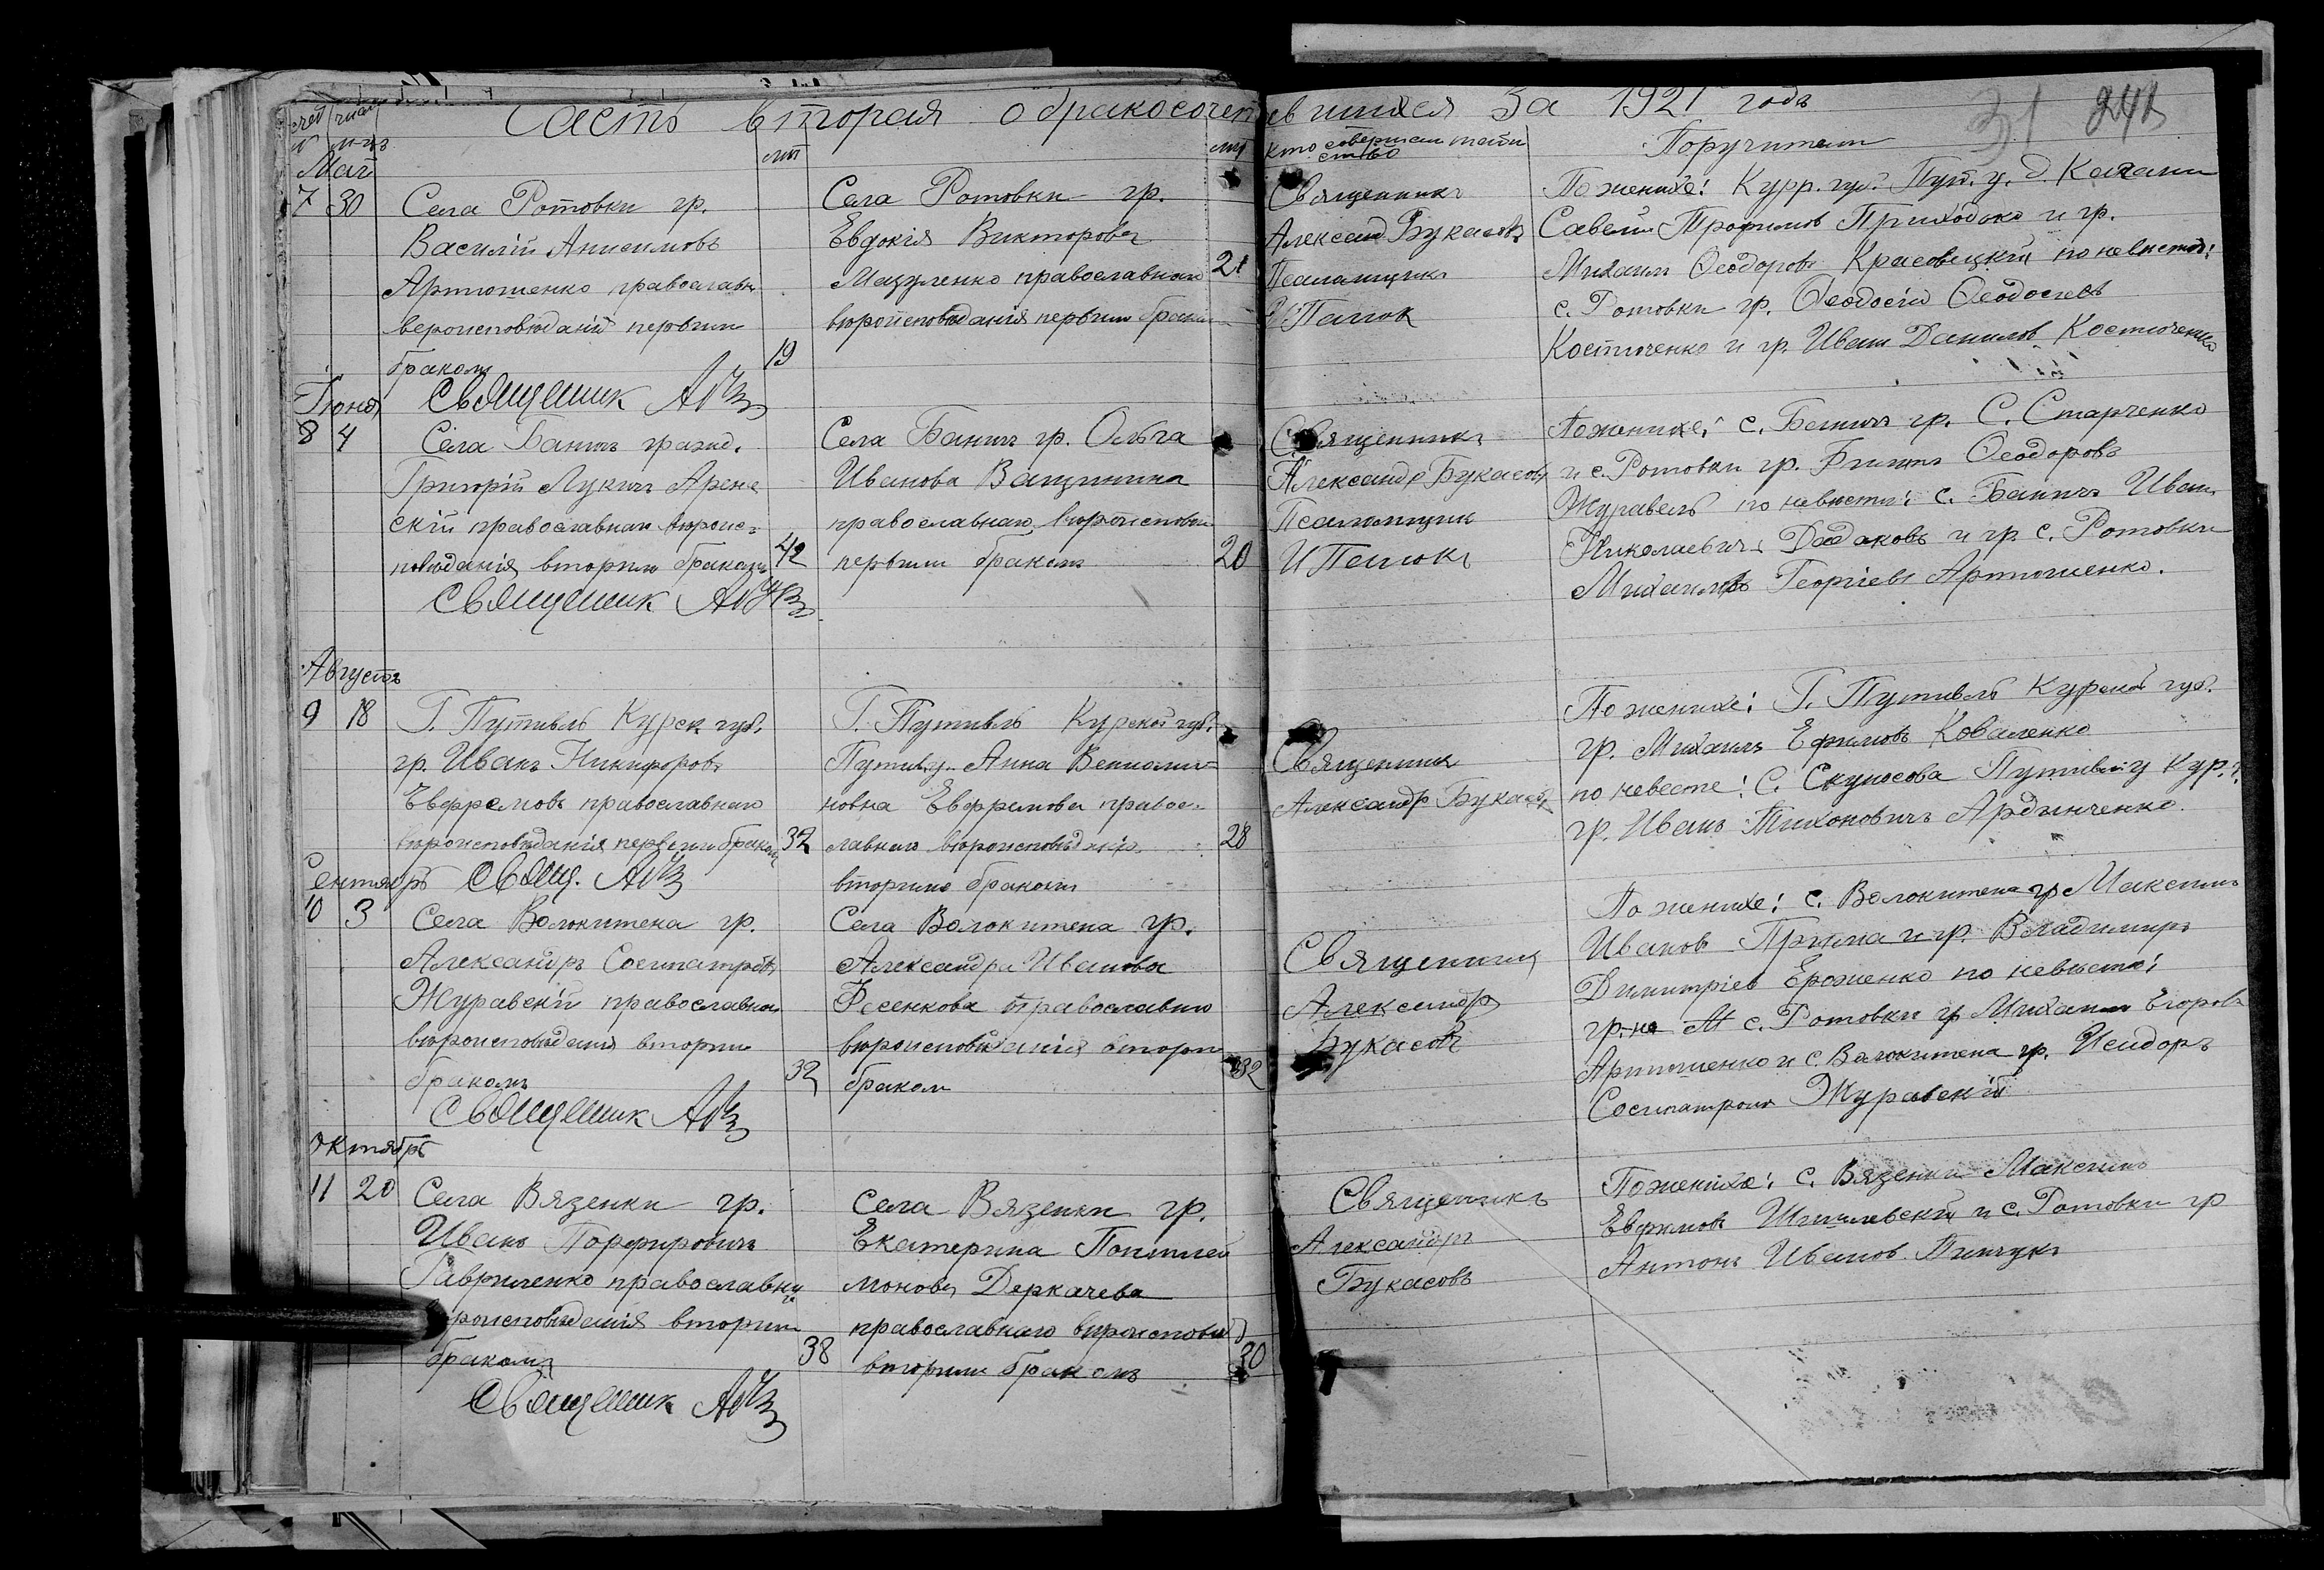 Часть вторая о бракосочетавшихся за 1921 годъ
31 241
лѣт
лѣт
Кто совершал таин
ство
Поручители
Май
7 30
Села Ротовки гр.
Василій Анисимовъ
Артюшенко православн
вероисповѣданія первым
браком
19
Священник АБ
Села Ротовки гр.
Евдокія Викторова
Мацуленко православнаго
вѣроисповѣданія первым браком
21
Священникъ
Александ Букасовъ
Псаломщикъ
И Пашок
По женихе: Курр. губ. Пут. у. д. Качани
Савелій Трофимов Приходько и гр.
Михаил Ѳеодоровъ Красовицкій по невѣстѣ:
с. Ротовки гр. Ѳеодосій Ѳеодосіевъ
Костюченко и гр. Иван Данилов Костюченко
Іюнь
8 4
Села Баничъ гражд.
Григорій Лукичъ Арене
скій православнаго вѣроис=
повѣданія вторым бракомъ
42
Священник АБ
Села Баничъ гр. Ольга
Иванова Ващинина
православнаго вѣроисповѣд
первымъ бракомъ
20
Священникъ
Александръ Букасовъ
Псаломщик
И Пашокъ
По женихе: с. Баничъ гр. С. Старченко
и с. Ротовки гр. Филипъ Ѳеодоровъ
Журавель по невѣсти: с. Баничъ Иван
Николаевичъ Дадаковъ и гр с. Ротовки
Михаилъ Георгіевъ Артюшенко.
Августъ
9 18
Г. Путивль Курск губ.
гр. Иванъ Никифоровъ
Евфремовъ православнаго
вѣроисповѣданія первым браком
32
Свящ. АБ
Г. Путивль Курской губ.
Путив.у. Анна Вениоми=
новна Евфремова правос=
лавнаго вѣроисповѣданія
28
вторымъ бракомъ
Священник
Александр Букасовъ
По женихе: Г. Путивль Курской губ.
гр. Михаилъ Ефимовъ Коваленко
по невесте: С. Скуносова Путивл у Кур. г.
гр. Иванъ Тихоновичъ Ардынченко.
Сентябрь
10 3
Села Волокитена гр.
Александръ Сосипатровъ
Журавскій православнаго
вѣроисповѣданія вторым
бракомъ
32
Священник АБ
Села Волокитена гр.
Александра Иванова
Фесенкова православнаго
вѣроисповѣданія вторы
браком
32
Священник
Александръ
Букасовъ
По женихе: с. Волокитена гр Максимъ
Иванов Прима и гр. Владимиръ
Димитріев Ерошенко по невѣстѣ:
гр. на М с. Ротовки гр Михаил Егоровъ
Артюшенко и с. Волокитена гр. Исидоръ
Сосипатров Журавскій
Октябрь
11 20
Села Вязенки гр.
Иванъ Порфировичъ
Гавриленко православнаго
вѣроисповѣданія вторым
бракомъ
38
Священник АБ
Села Вязенки гр.
Екатерина Понтилей
монова Деркачева
православнаго вѣроисповѣд
вторым бракомъ
30
Священникъ
Александръ
Букасовъ
По женихе: с. Вязенки Максимъ
Евфимовъ Шишлевскій и с. Ротовки гр
Антонъ Иванов Пинчукъ